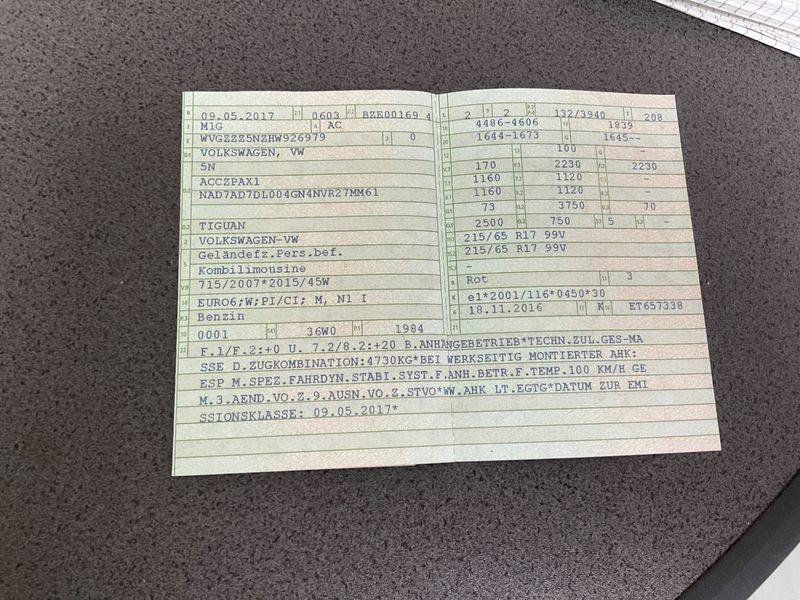 B 09.05.2017 2.1 0603 2.2 BZE00169 4
J M1G 4 AC
E WVGZZZ5NZHW926979 3 0
D.1 VOLKSWAGEN, VW
5N
D.2 ACCZPAX1
NAD7AD7DL004GN4NVR27MM61
D.3 TIGUAN
2 VOLKSWAGEN-VW
5 Geländefz.Pers.bef.
Kombilimousine
V.9 715/2007*2015/45W
14 EURO6;W;PI/CI; M, N1 I
P.3 Benzin
10 0001 14.1 36W0 P.1 1984
L 2 9 2 P.2 P.4 132/3940 T 208
18 4486-4606 19 1839
20 1644-1673 G 1645--
12 - 13 100 Q -
V.7 170 F.1 2230 F.2 2230
7.1 1160 7.2 1120 7.3 -
8.1 1160 8.2 1120 8.3 -
U.1 73 U.2 3750 U.3 70
O.1 2500 O.2 750 S.1 5 S.2 -
15.1 215/65 R17 99V
15.2 215/65 R17 99V
15.3 -
R Rot 11 3
K e1*2001/116*0450*30
6 18.11.2016 17 K 16 ET657338
21
22 F.1/F.2:+0 U. 7.2/8.2:+20 B.ANHÄNGEBETRIEB*TECHN.ZUL.GES-MA
SSE D.ZUGKOMBINATION:4730KG*BEI WERKSEITIG MONTIERTER AHK:
ESP M.SPEZ.FAHRDYN.STABI.SYST.F.ANH.BETR.F.TEMP.100 KM/H GE
M.3.AEND.VO.Z.9.AUSN.VO.Z.STVO*WW.AHK LT.EGTG*DATUM ZUR EMI
SSIONSKLASSE: 09.05.2017*